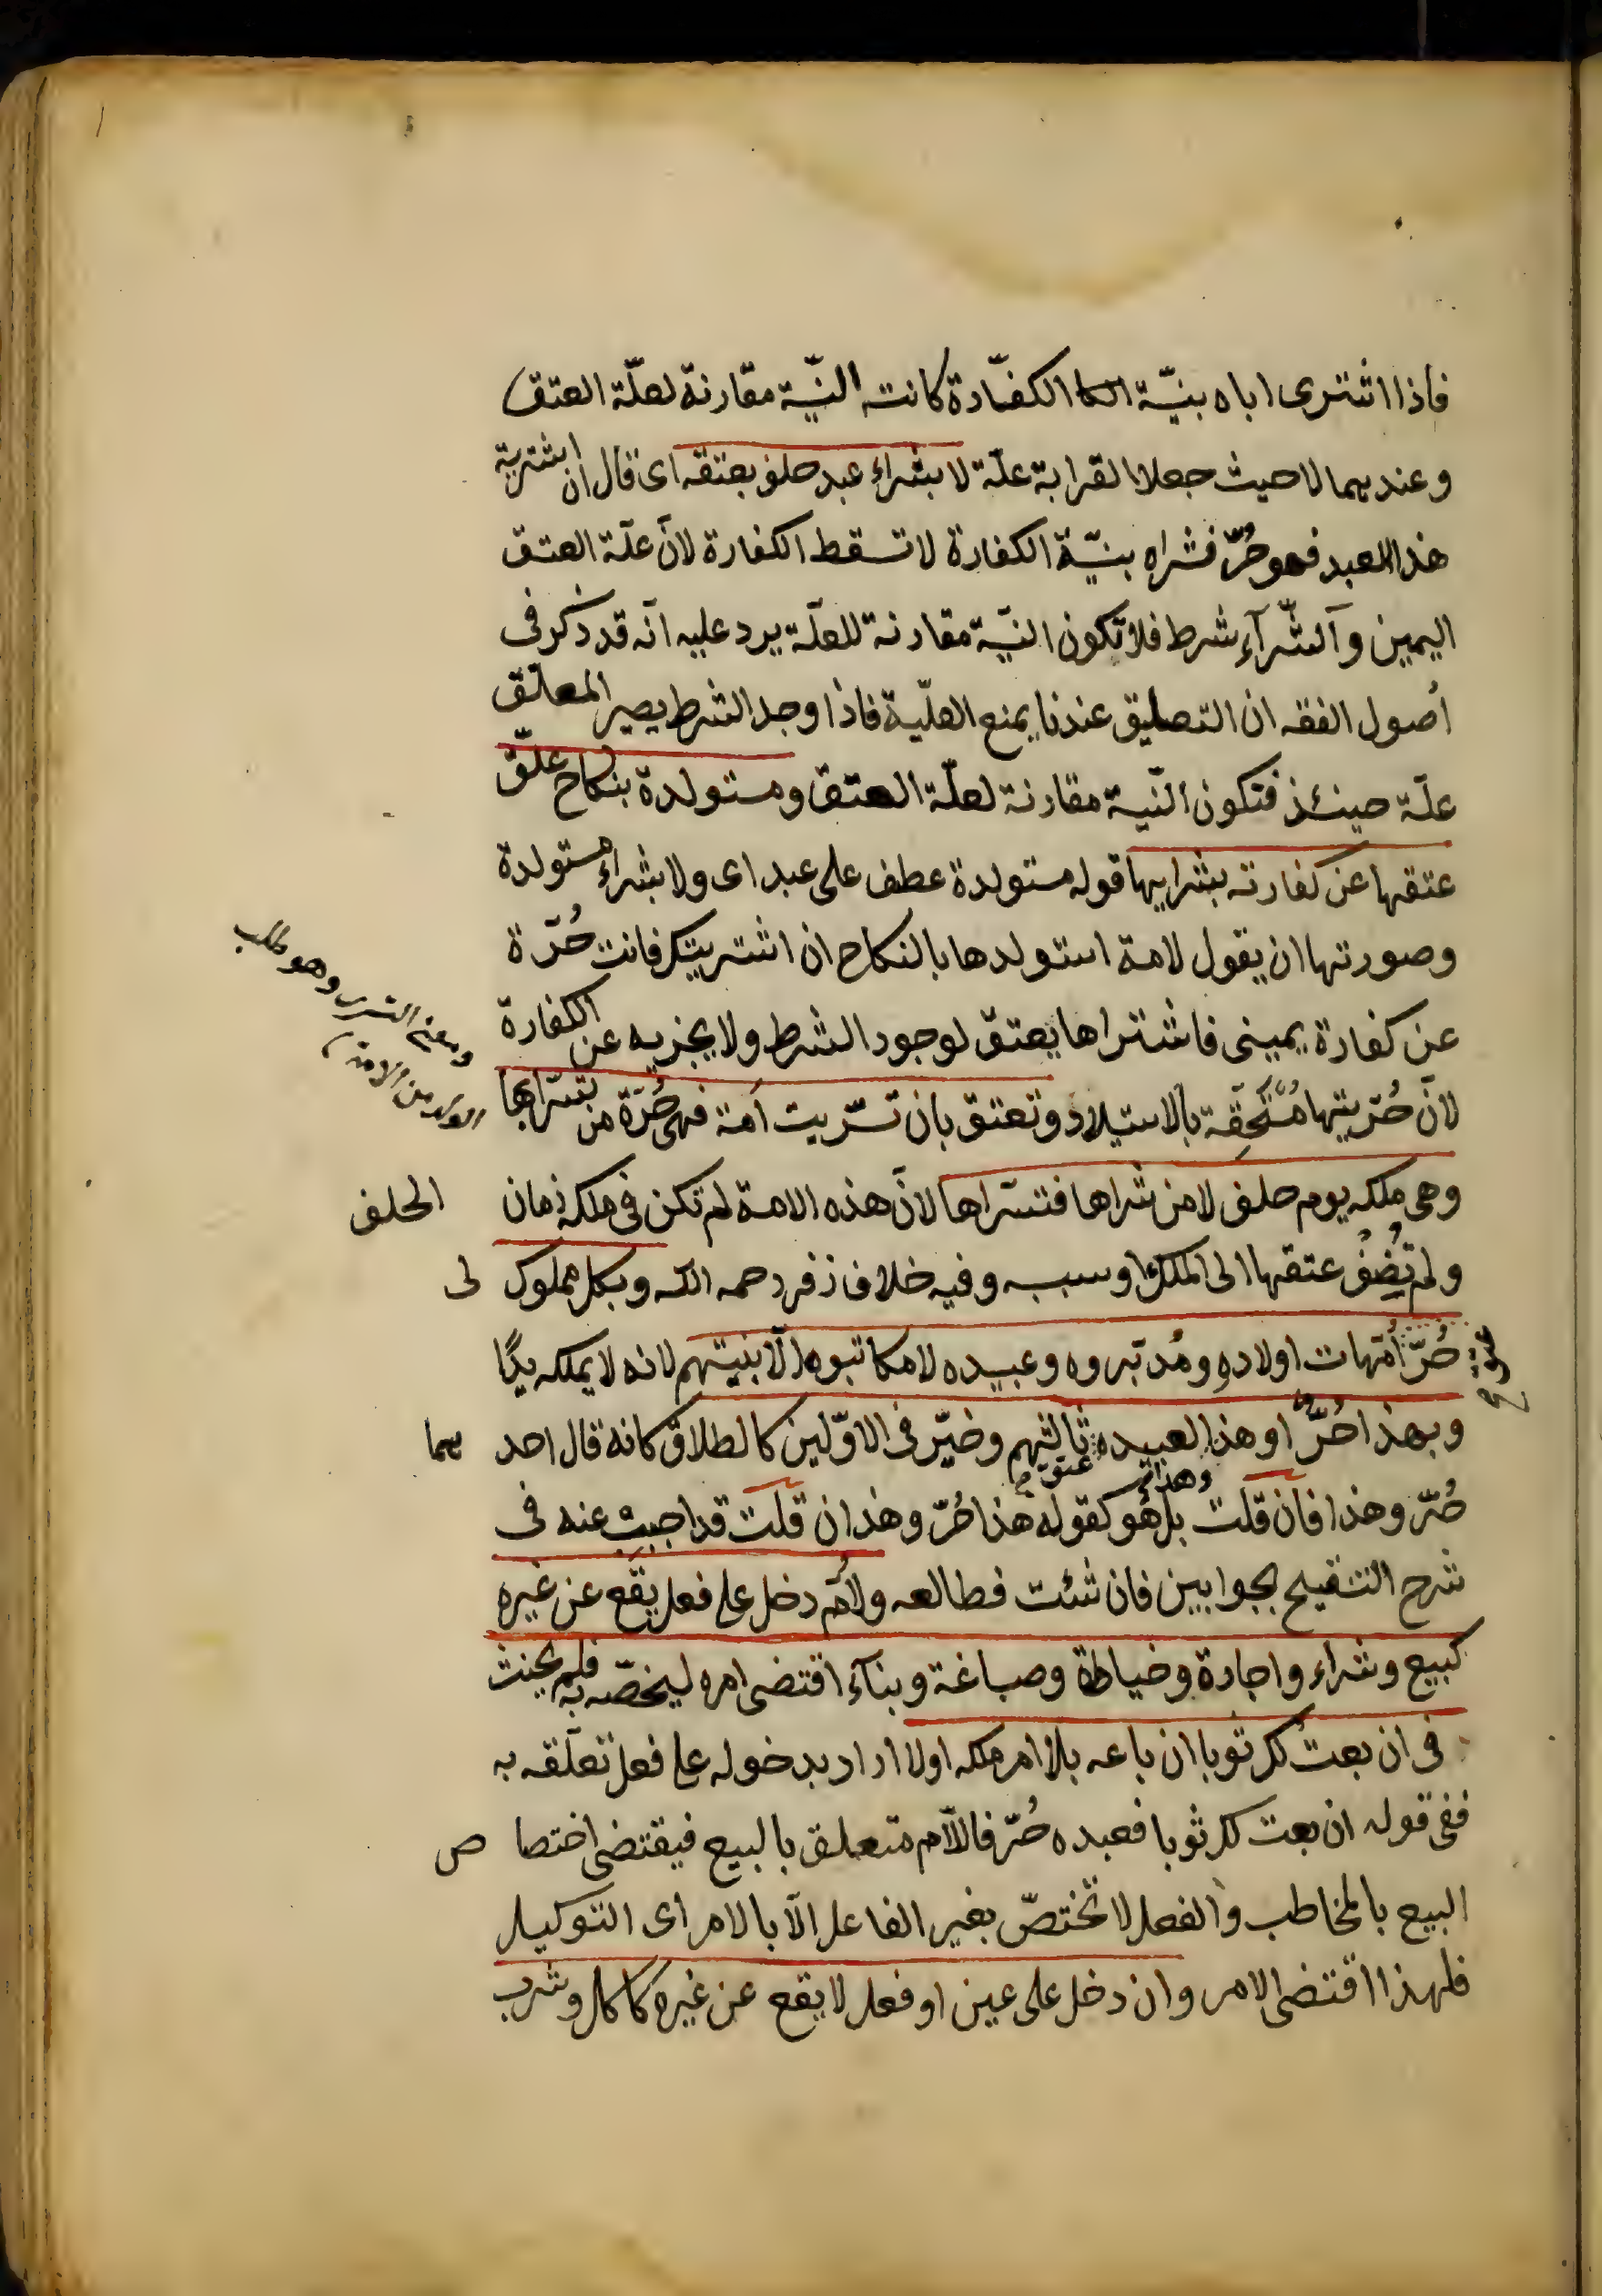 فاذا اشترى اباه بنيّة الكا الكفّارة كانت النيّة مقارنة لعلّة العتق
وعندهما لا حيث جعلا القرابة علّة لا بشراء عبد حلف بعتقه اى قال ان اشتريته
هذا العبد فهو حُرّ فشراه بنيّة الكفارة لا تسقط الكفارة لانّ علّة العتق
اليمين والشّراء شرط فلا تكون النيّة مقارنة للعلّة يرد عليه انّه قد ذكر فى
اُصول الفقه ان التعليق عندنا يمنع العلّية فاذا وجد الشرط يصير المعلّق
علّة حينئذ فتكون النّية مقارنة لعلّة العتق ومستولدة بنكاح علّق
عتقها عن كفارته بشرايها قوله مستولدة عطف على عبد اى ولا بشراء مستولدة
وصورتها ان يقول لامة استولدها بالنكاح ان اشتريتك فانت حُرّة
عن كفارة يمينى فاشتراها يعتق لوجود الشرط ولا يجزيه عن الكفارة
لانّ حُرّيتها مُسْتَحِقّة بالاستيلاد وتعتق بان تسّريت اَمة فهى حُرّة من تسّراها
وهى ملكه يوم حلف لا من شراها فتسّراها لانّ هذه الامة لم تكن فى ملكه زمان الحلف
ولم يُضِفْ عتقها الى الملك او سببه وفيه خلاف زفر رحمه الله وبكل مملوك لى
حُرّ اُمّهات اولاده ومُدبّروه وعبيده لا مكاتبوه الّا بنيتهم لانه لا يملكه يدًا
وبهذا حُرّ او هذا لعبيده ثالثهم وخيّر فى الاوّلين كالطلاق كانه قال احدهما
حُرّ وهذا فان قلت بل هُو كقوله هذا حُرّ وهذان قلت قد اجيب عنه فى
شرح التنقيح بجوابين فان شئت فطالعه ولامٌ دخل على فعل يَقَع عن غيره
كبيع وشراء واجارة وخياطة وصباغة وبناء اقتضى امره ليخصّه به فلم يحنث
فى ان بعتُ لك ثوبا ان باعه بلا امر ملكه اولا اراد بدخوله على فعل تعلّقه به
ففى قوله ان بعت لك ثوبا فعبده حُرّ فاللّام متعلق بالبيع فيقتضى اختصاص
البيع بالمخاطب والفعل لا تختصّ بغير الفاعل الّا بالامر اى التوكيل
فلهذا اقتضى الامر وان دخل على عين او فعل لا يقع عن غيره كاكل وشرب
وهو طلب
الولد من الامة
وهذا
عتق